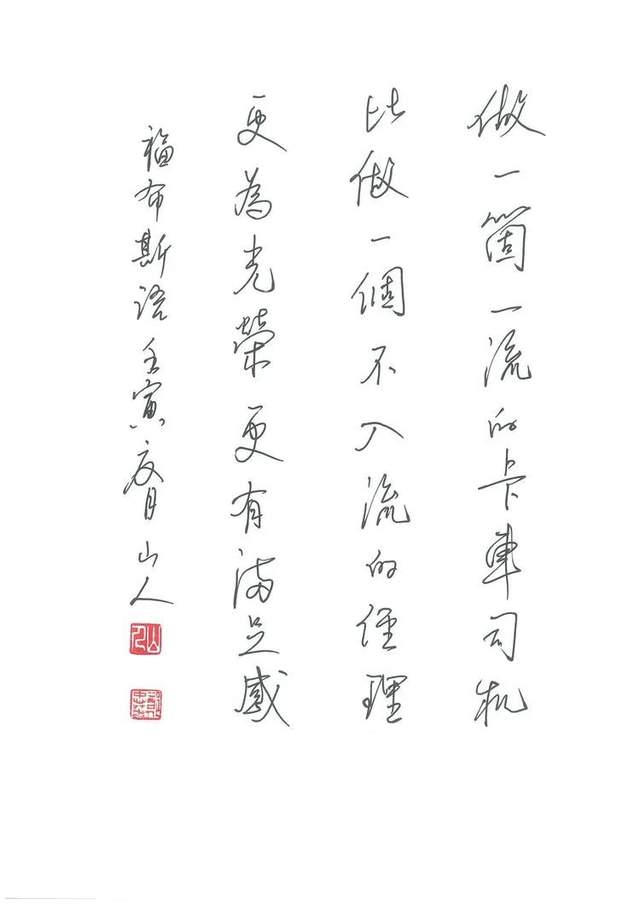 做一箇一流的卡車司机
比做一個不入流的经理
更為光榮更有满足感
福布斯语壬寅夜月山人
山人